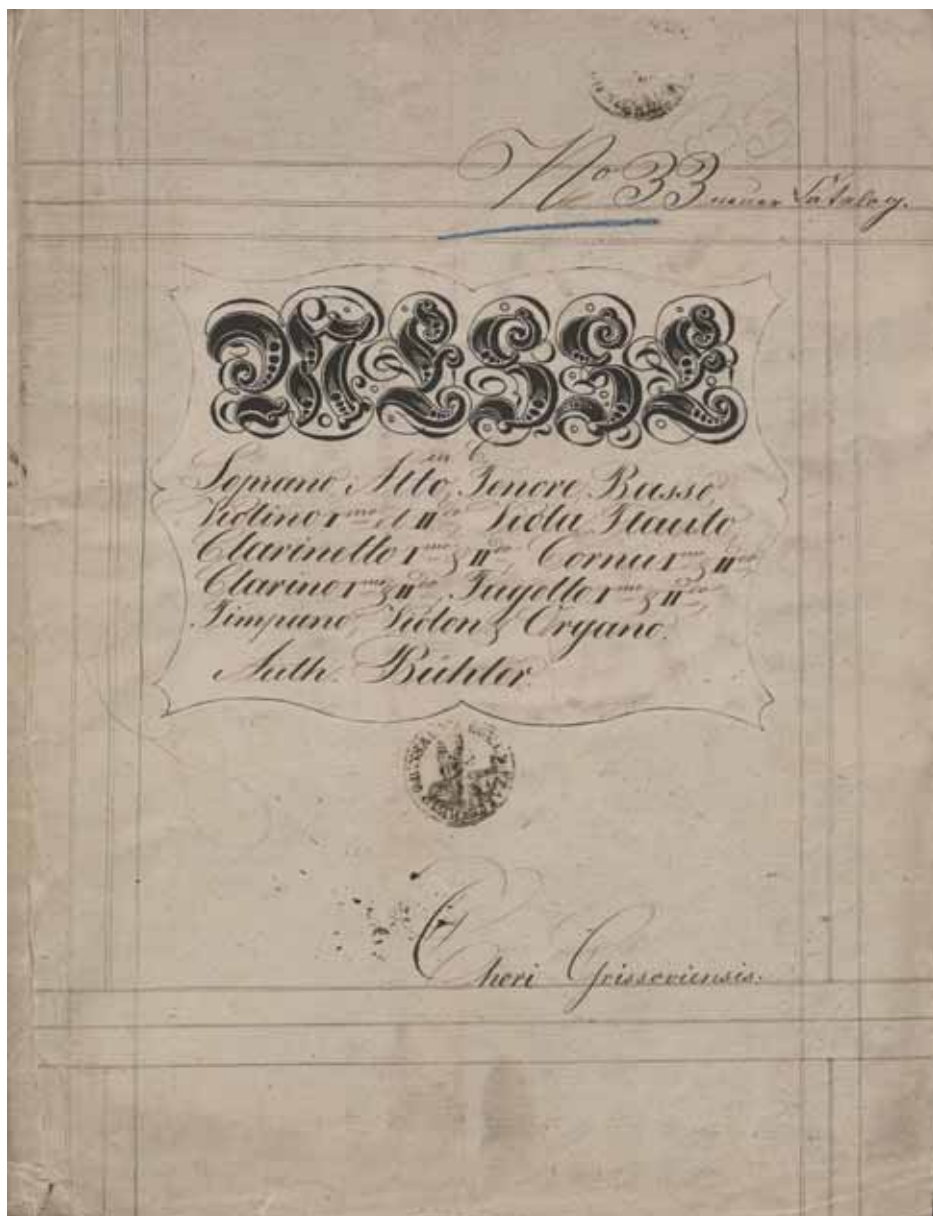 No 33 neuer Catalog.
MESSE
en C
Soprano Alto, Tenore, Basso,
Violino Imo et IIdo Viola Flauto,
Clarinetto Imo & IIdo, Cornu Imo & IIdo,
Clarino Imo & IIdo, Fagotto Imo & IIdo,
Timpano, Violon & Organo.
Auth. Bühler.
Chori Grissoviensis.